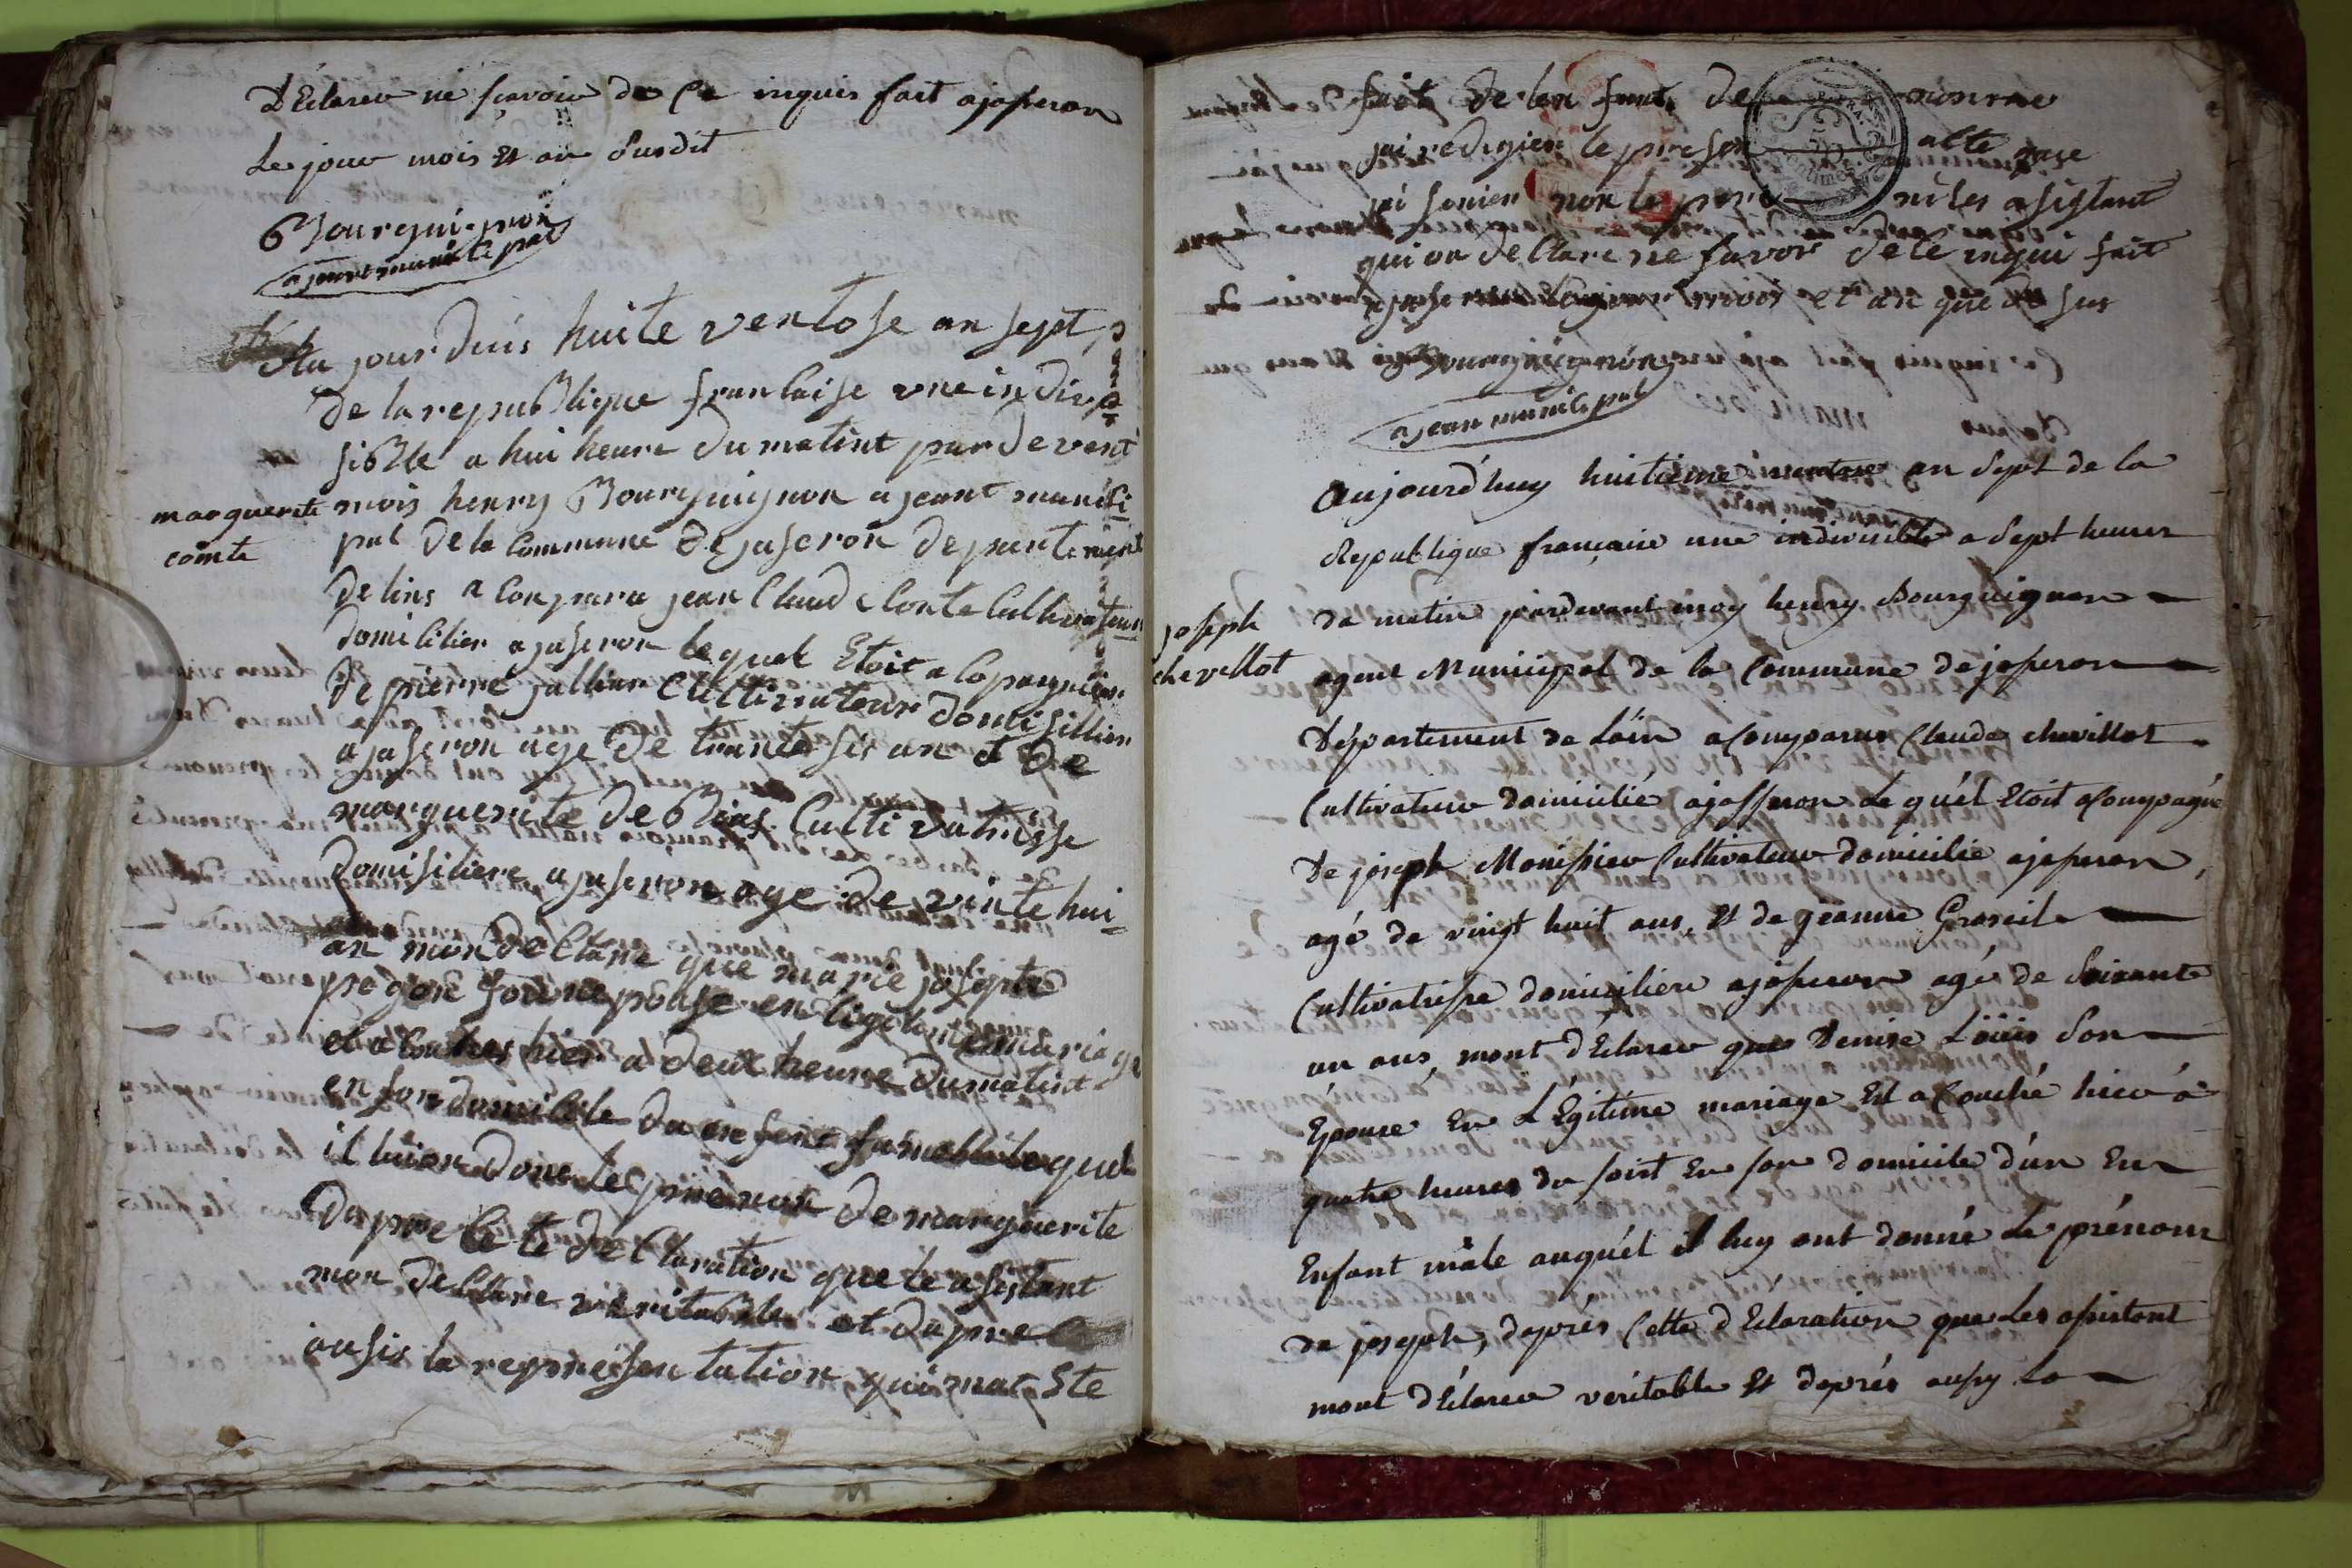 Déclarer ne sçavoir de Ce inquis fait ajasseron
Les jour mois et an susdit
Bourguignon
ajeant municipal
Au jourduis huite ventose an sept
de la republique franlaise une indivi
sible a hui heure du matint pardevent
marguerite
comte
mois henry Bourguignon ajeant munisi
pal de la Commune de jaseron departement
de lins a Conparu jean Claud Conte Cultivateur
domicilier a jaseron lequel Etoit a Copagnier
de pierre jallier Cultivateur domisillier
a jaseron age de trante sis an et de
marguerite de Blias Cultivatrisse
domisiliere a jaseron age de vinte hui
an mon declare que marie josepte
pegon son nepouse en ligitime mariage
et a Couches hier a deux heure du matint
en son domicile du en fent famelle lequel
il luion done le prenon de marguerite
dapre Cete declaration que le asistant
mon declare veritable et dapre
ausis la represen tation qui mat Ste
fait de len fant de nomme
jai redigier le presen alte que
jai sinier non le pere ni les asistant
qui on declare ne savoir de Ce inqui fait
a jaseron les jour mois et an que de sus
Bourguignon
ajean municipal
Aujourd'huy huitieme ventose an Sept de la
Republique française une indivisible a Sept heures
joseph
chevillot
du matin pardevant moy henry Bourguignon
agent Municipal de la Commune de jasseron
Département de L'ain a Comparu Claude chevillot
Cultivateur domicilié ajasseron Le quel Etoit acompagné
De joseph Monissier Cultivateur domicilié ajasseron,
agé de vingt huit ans, et de jeanne
Cultivatrisse domiciliere ajasseron agé de Soixante
un ans, mont déclarer que Denise Loüis Son
Epouse En LEgitime mariage Est acouché hier à
quatre heures du soirt En son domicile d'un En
Enfant mâle auquél il luy ont donné Le prénom
de joseph, daprés Cette déclaration que Les assistant
mont déclarer veritable et daprés aussy La